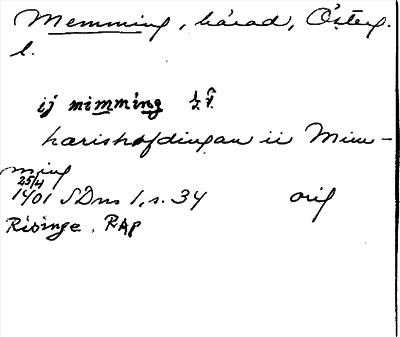 Memming, härad, Österg.
l.
ij mimming
härishöfdingan ii Mim-
ming
25/4
1401 SDns 1, s. 34 orig
Risinge, RAP